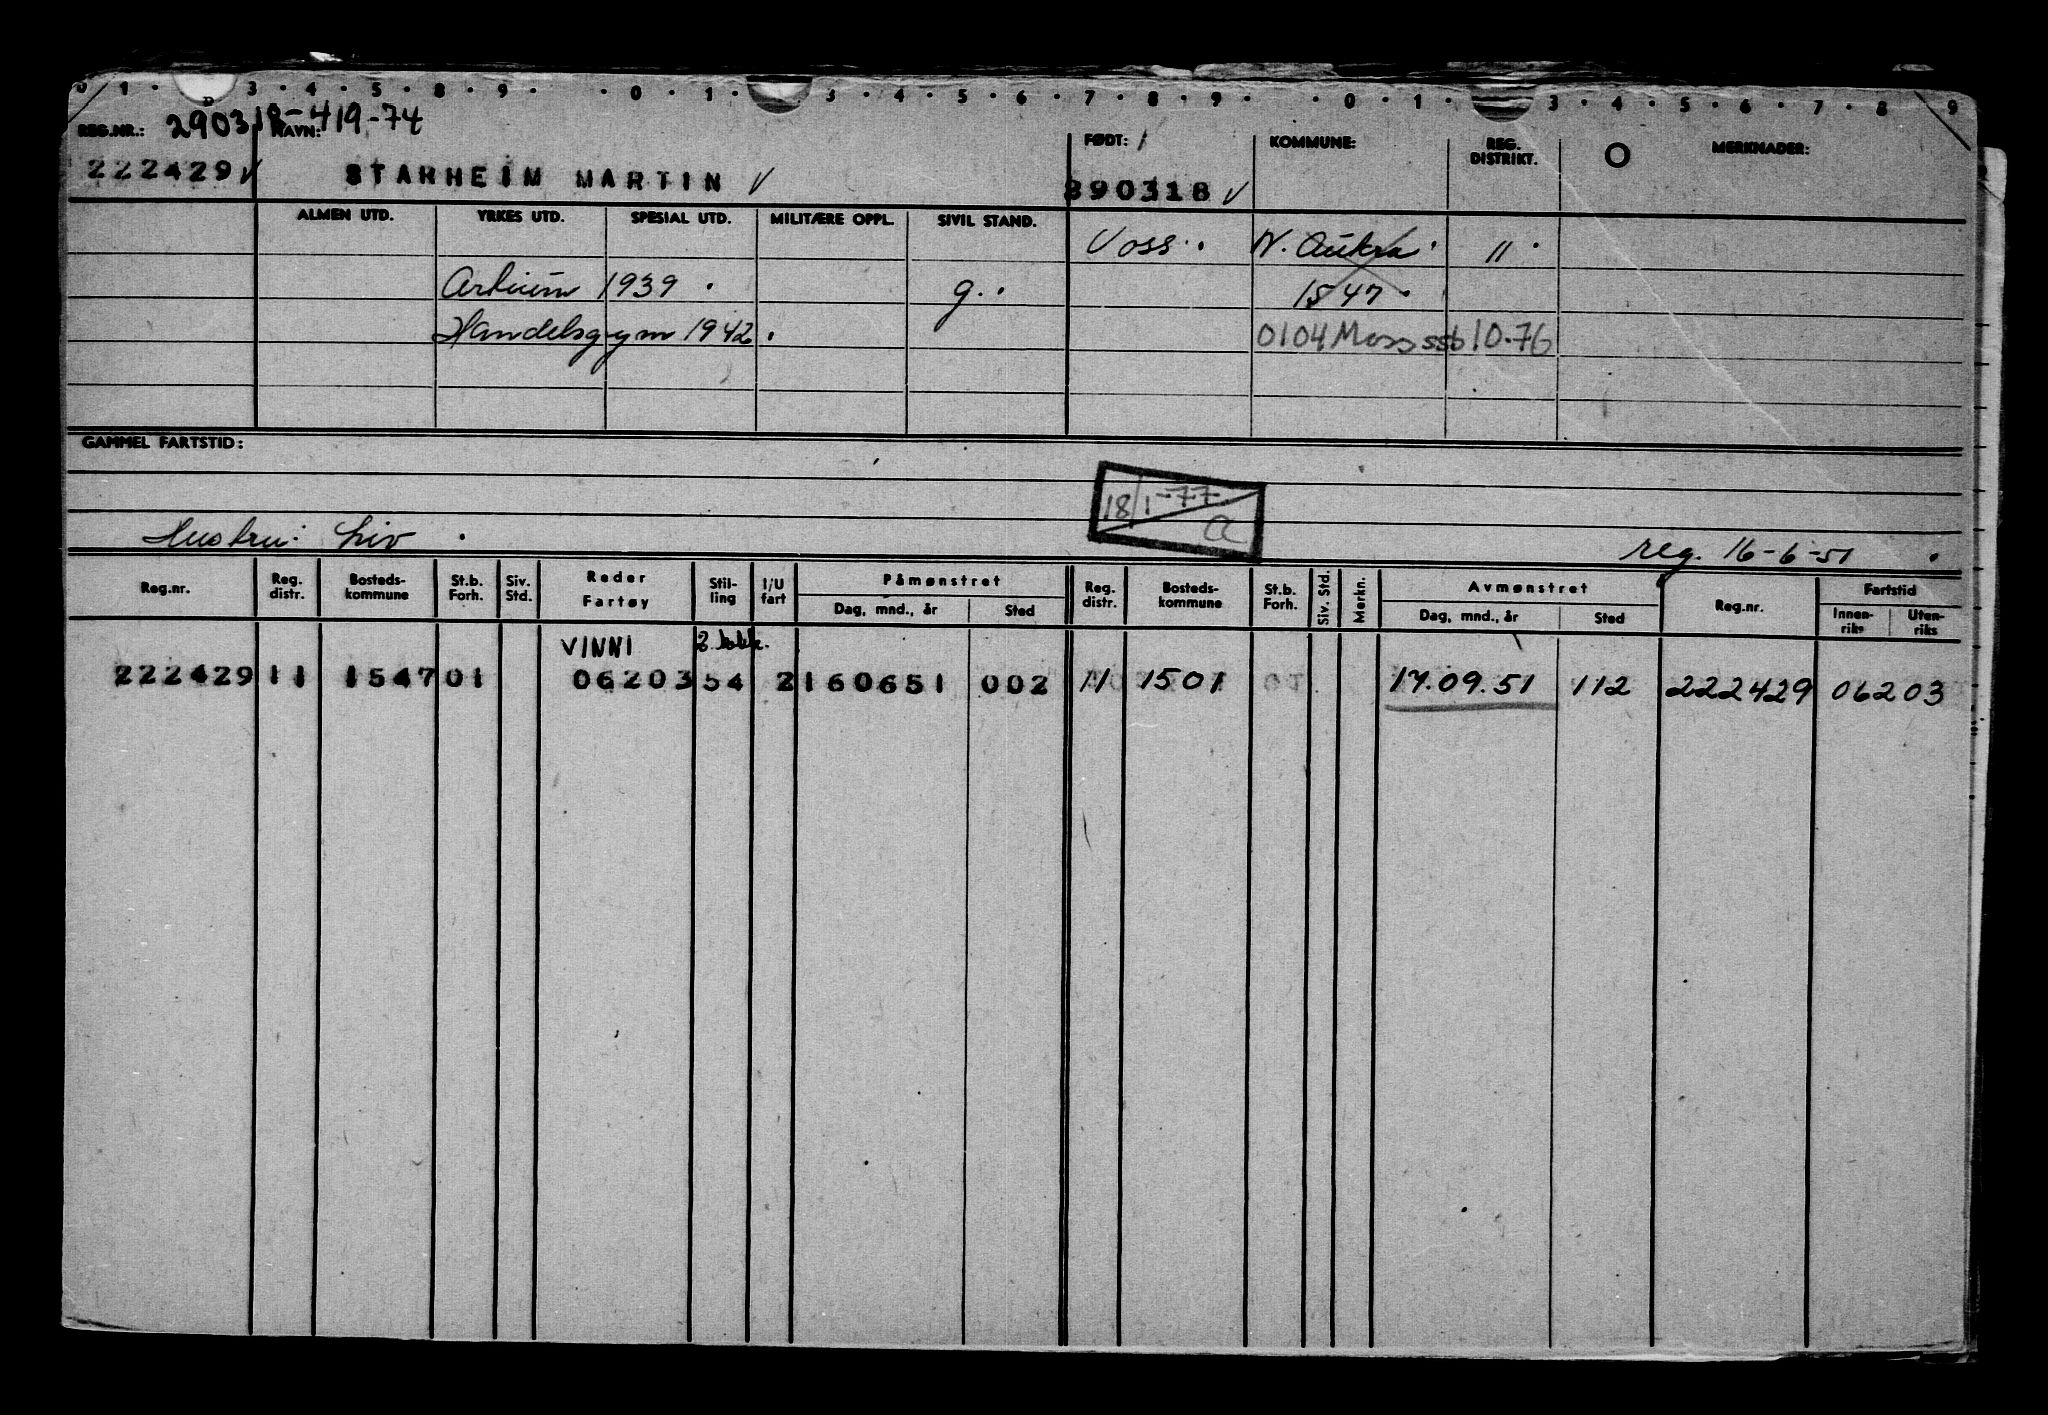 0 1 . 3 . 4 . 5 . 8 . 9 . . 0 . 1 . 3 . 4 . 5 . 6 . 7 . 8 . 9 . . 0 . 1 . 3 . 4 . 5 . 6 . 7 . 8 9
REG.NR.: 290318-419-74 NAVN: FØDT: KOMMUNE: REG. DISTRIKT. O MERKNADER:
222429 STARHEIM MARTIN 890318
ALMEN UTD. YRKES UTD. SPESIAL UTD. MILITÆRE OPPL. SIVIL STAND. Voss. N. Aukra 11
Artium 1939 g. 1547
Handelsgym 1942 0104 Moss ssb 10.76
GAMMEL FARTSTID:
18/1-77
a
Hustru: Liv reg. 16-6-51
Reg.nr. Reg. distr. Bosteds-kommune St.b. Forh. Siv. Std. Reder Fartøy Stil-ling I/U fart Påmønstret Dag, mnd., år Sted Reg. distr. Bosteds-kommune St.b. Forh. Siv. Std. Merkn. Avmønstret Dag, mnd., år Sted Reg.nr. Fartstid Innen-riks Uten-riks
VINNI
222429 11 1547 01 06203 54 2 160651 002 11 1501 17.09.51 112 222429 06203